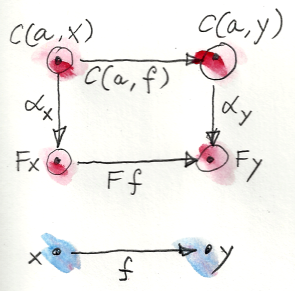 C(a,x) C(a,y)
C(a,f)
αx αy
Fx Fy
Ff
x y
f